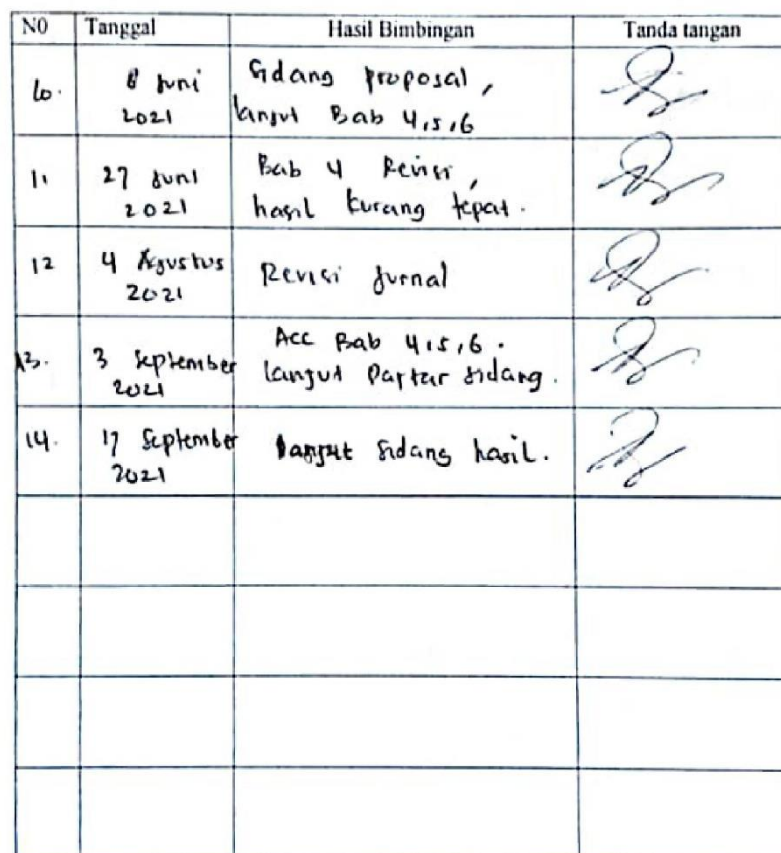 N0 Tanggal Hasil Bimbingan Tanda tangan
10. 8 Juni Sidang proposal,
2021 lanjut Bab 4,5,6
11 27 Juni Bab 4 Revisi,
2021 hasil kurang tepat.
12 4 Agustus Revisi Jurnal
2021
13. 3 September Acc Bab 4,5,6.
2021 lanjut Daftar sidang.
14. 17 September lanjut sidang hasil.
2021